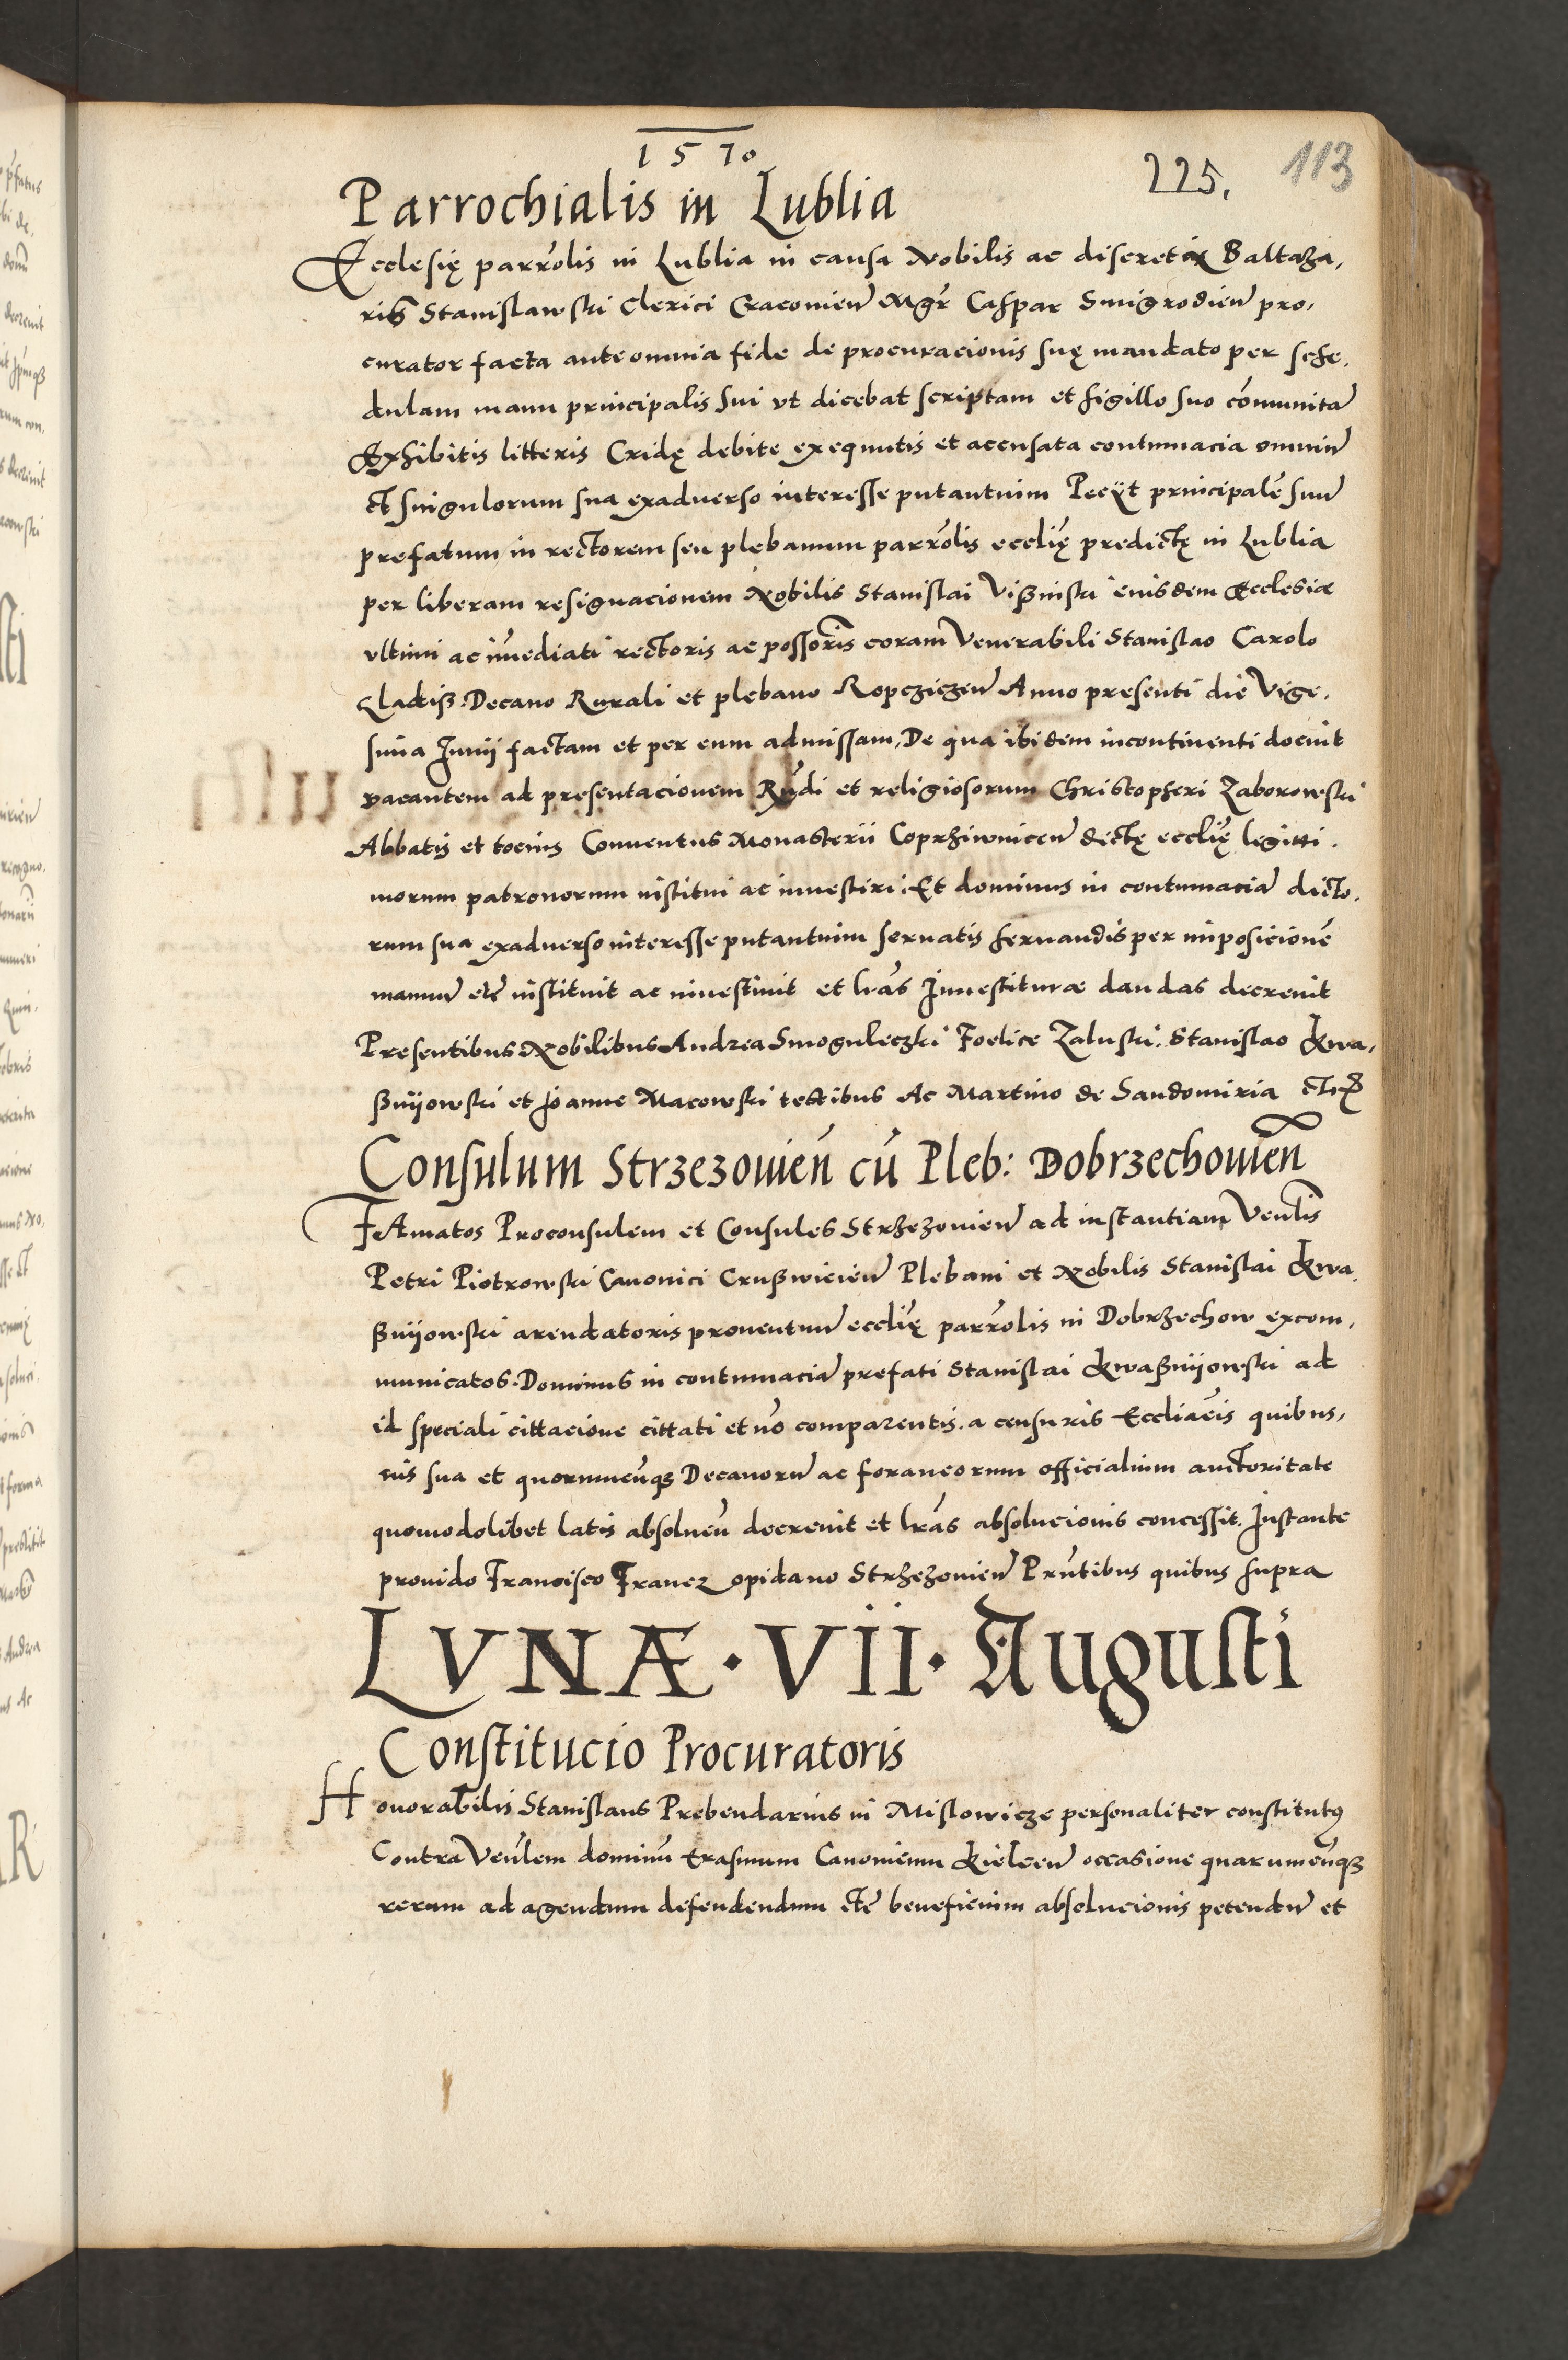 1570
225. 113
Parrochialis in Lublia
Ecclesię parrolis in Lublia in causa Nobilis ac discreti Baltaza,
ris Stanislawski Clerici Cracovien Mgr Caspar Smigrodien pro,
curator facta ante omnia fide de procuracionis suę mandato per sche,
dulam manu principalis sui vt dicebat scriptam et sigillo suo comunitā
Exhibitis litteris Cridę debite exequutis et accusata contumacia omniū
et singulorum sua exaduerso interesse putantium Peciit principalē suū
prefatum in rectorem seu plebanum parrolis ecclię predictę in Lublia
per liberam resignacionem Nobilis Stanislai Vißniski eiusdem Ecclesiæ
vltimi ac imediati rectoris ac possoris coram Venerabili Stanislao Carolo
Decano Rurali et plebano Ropczicen Anno presenti die Vige,
sima Junij factam et per eum admissam, De qua ibidem incontinenti docuit
vacantem ad presentacionem Rndi et religiosorum Christopheri Zaborowski
Abbatis et tocius Conuentus Monasterii Coprziwnicen dictę ecclię legitti,
morum patronorum institui ac inuestiri. Et dominus in contumaciā dicto,
rum sua exaduerso interesse putantium seruatis seruandis per imposicionē
manuū etc instituit ac inuestiuit et lras Inuestituræ dandas decreuit
Presentibus Nobilibus Andrea Smoguleczki Foelice Zaluski, Stanislao Kwa,
ßniowski et Joanne Macowski testibus Ac Martino de Sandomiria etc
Consulum Strzezouien cū Pleb: Dobrzechouien
FAmatos Proconsulem et Consules Strzezouien ad instantiam Venlis
Petri Piotrowski Canonici Crußwicien Plebani et Nobilis Stanislai Kwa,
ßnijowski arendatoris prouentuū ecclię parrolis in Dobrzechow excom,
municatos. Dominus in contumaciā prefati Stanislai Kwaßnijowski ad
id speciali cittacione cittati et nō comparentis. a censuris Eccliacis quibus,
uis sua et quorumcunq Decanorū ac foraneorum officialium auctoritate
quomodolibet latis absoluen decreuit et lras absolucionis concessit. Instante
prouido Francisco Francz opidano Strzezouien Prntibus quibus supra
LVNÆ · VII · Augusti
Constitucio Procuratoris
Honorabilis Stanislaus Prebendarius in Mislowicze personaliter constitutus
Contra Venlem dominū Erasmum Canonicum Kielcen occasione quarumcunq
rerum ad agendum defendendum etc beneficium absolucionis petendū et